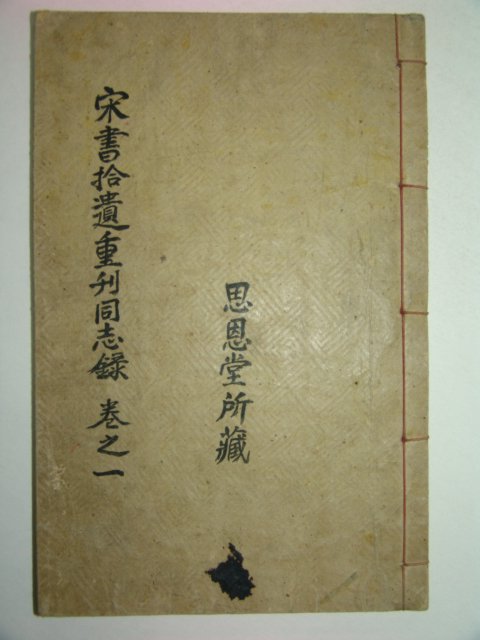 宋書拾遺重刊同志錄 卷之一
思恩堂所藏